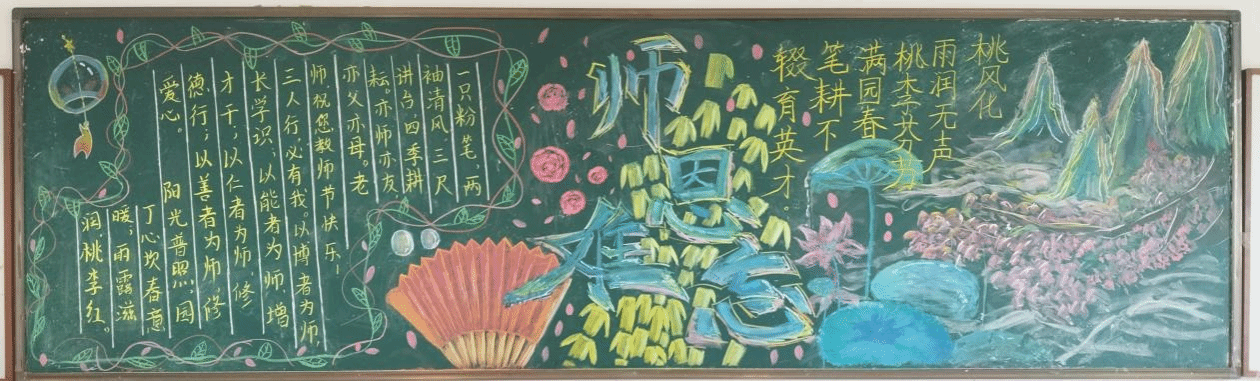 桃风化
雨润无声
桃李芬芳
满园春
笔耕不
辍育英才。
师恩难忘
一只粉笔，两
袖清风，三尺
讲台，四季耕
耘。亦师亦友
亦父亦母。老
师祝您教师节快乐！
三人行，必有我。以博者为师，
长学识；以能者为师，增
才干；以仁者为师，修
德行；以善者为师，修
爱心。 阳光普照，园
丁心坎春意
暖；雨露滋
润，桃李红。